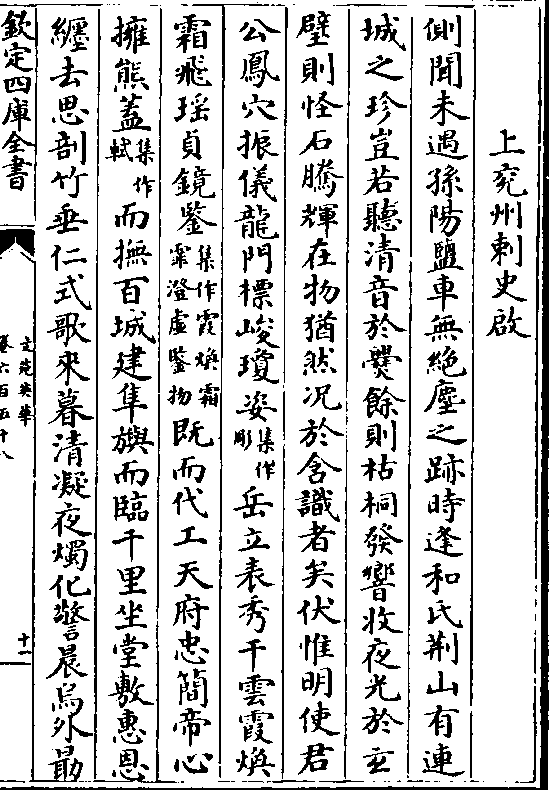 上兖州刺史啟
側聞未遇孫陽鹽車無絶塵之跡時逢和氏荆山有連
城之珍豈若聽清音於㸑餘則枯桐發響收夜光於玄
壁則怪石騰輝在物猶然况於含識者矣伏惟明使君
公鳳穴振儀龍門標峻瓊姿集作彫岳立表秀干雲霞煥
霜飛瑶貞鏡鑒集作霞煥霜霏澄虛鑒物既而代工天府忠簡帝心
擁熊蓋集作軾而撫百城建隼旟而臨千里坐堂敷惠恩
纏去思剖竹垂仁式歌來暮清凝夜燭化警晨烏外勗
欽定四庫全書
文苑英華
卷六百五十八
十一